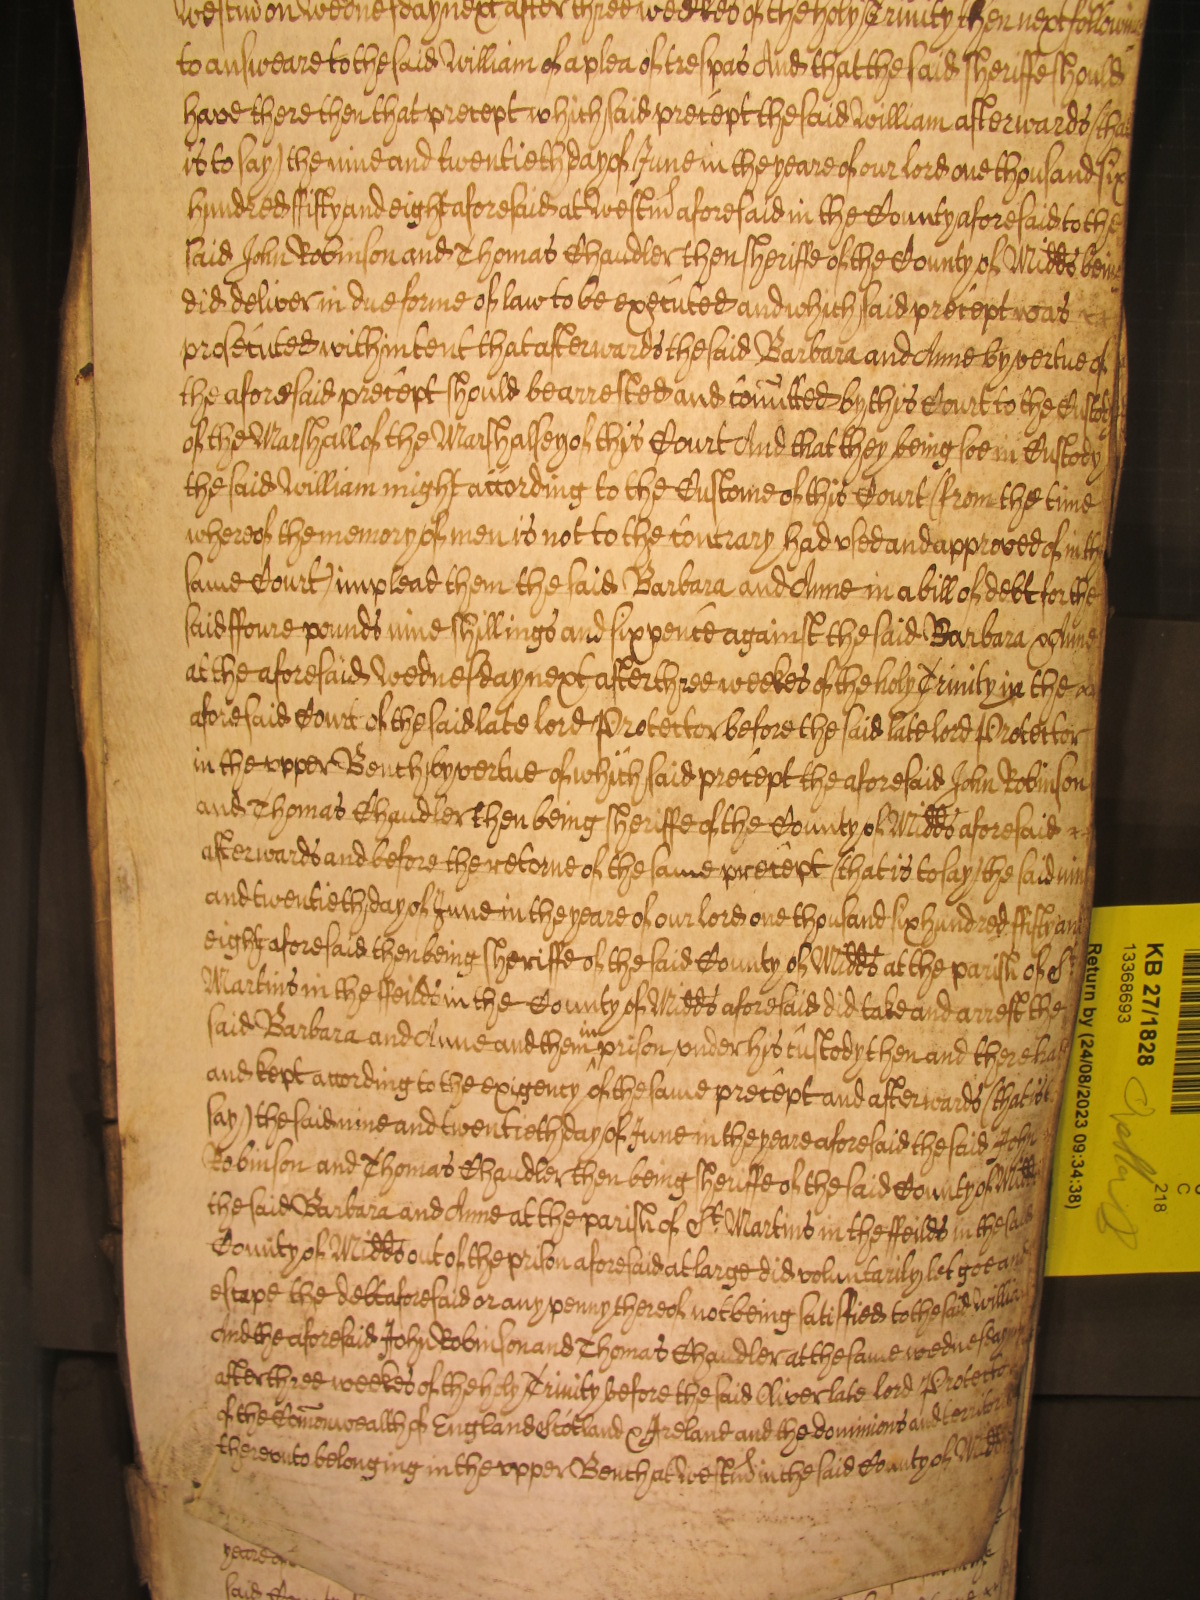 Westm on Wednesday next after three weekes of the holy Trinity then next followin
to answeare to the said William of a plea of trespas And that the said Sheriffe should
have there then that precept which said precept the said William afterwards (that
is to say) the nine and twentieth day of June in the yeare of our lord one thousand six
hundred ffifty and eight aforesaid at Westm aforesaid in the County aforesaid to the
said John Robinson and Thomas Chandler then Sheriffe of the County of Midds being
did deliver in due forme of law to be executed and which said precept was
prosecuted with intent that afterwards the said Barbara and Anne by vertue of
the aforesaid precept should be arrested and comitted by this Court to the Custody
of the Marshall of the Marshalsey of this Court And that they being soe in Custody
the said William might according to the Custome of this Court (from the time
whereof the memory of men is not to the contrary had used and approved of in the
same Court) implead them the said Barbara and Anne in a bill of debt for the
said ffoure pounds nine shillings and six pence against the said Barbara & Anne
at the aforesaid Wednesday next after three weekes of the holy Trinity in the
aforesaid Court of the said late lord Protector before the said late lord Protector
in the upper Bench by vertue of which said precept the aforesaid John Robinson
and Thomas Chandler then being Sheriffe of the County of Midds aforesaid
afterwards and before the retorne of the same precept (that is to say) the said nine
and twentieth day of June in the yeare of our lord one thousand six hundred ffifty and
eight aforesaid then being Sheriffe of the said County of Midds at the parish of St
Martins in the ffeilds in the County of Midds aforesaid did take and arrest the
said Barbara and Anne and them in prison under his custody then and there had
and kept according to the exigency of the same precept and afterwards (that is to
say) the said nine and twentieth day of June in the yeare aforesaid the said John
Robinson and Thomas Chandler then being Sheriffe of the said County of Midds
the said Barbara and Anne at the parish of St Martins in the ffeilds in the said
County of Midds out of the prison aforesaid at large did voluntarily let goe and
escape the debt aforesaid or any penny thereof not being satisffied to the said William
And the aforesaid John Robinson and Thomas Chandler at the same wednesday
after three weekes of the holy Trinity before the said Oliver late lord Protector
of the Comonwealth of England Scotland & Ireland and the dominions and territories
thereunto belonging in the upper Bench at Westm in the said County of Midds
yeare
said
KB 27/1828
13368693
Return by (24/08/2023 09:34:38)
218
C